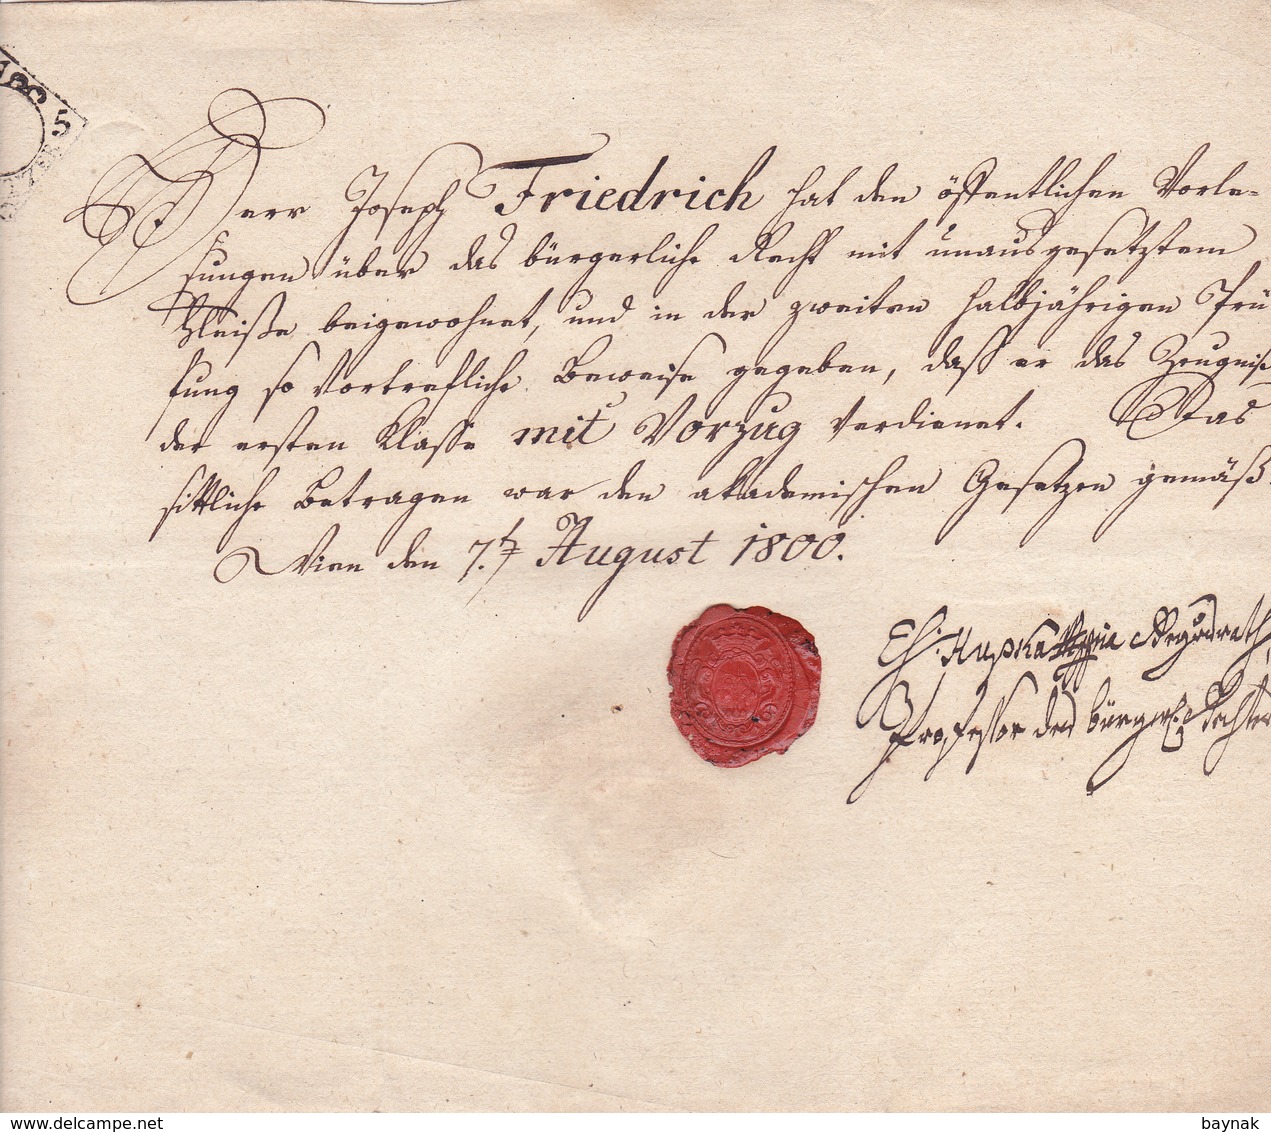 5
Herr Joseph Friedrich hat den öffentlichen Vorle-
sungen über das bürgerliche Recht mit unausgesetztem
Fleiße beigewohnet, und in der zweiten halbjährigen Prü
fung so vortrefliche Beweise gegeben, daß er das Zeugniß
der ersten Klasse mit Vorzug verdienet. Das
sittliche Betragen war den akademischen Gesetzen gemäß.
Wien den 7.t August 1800.
Hupka
Professor des bürgerl. Rechtes
baynak